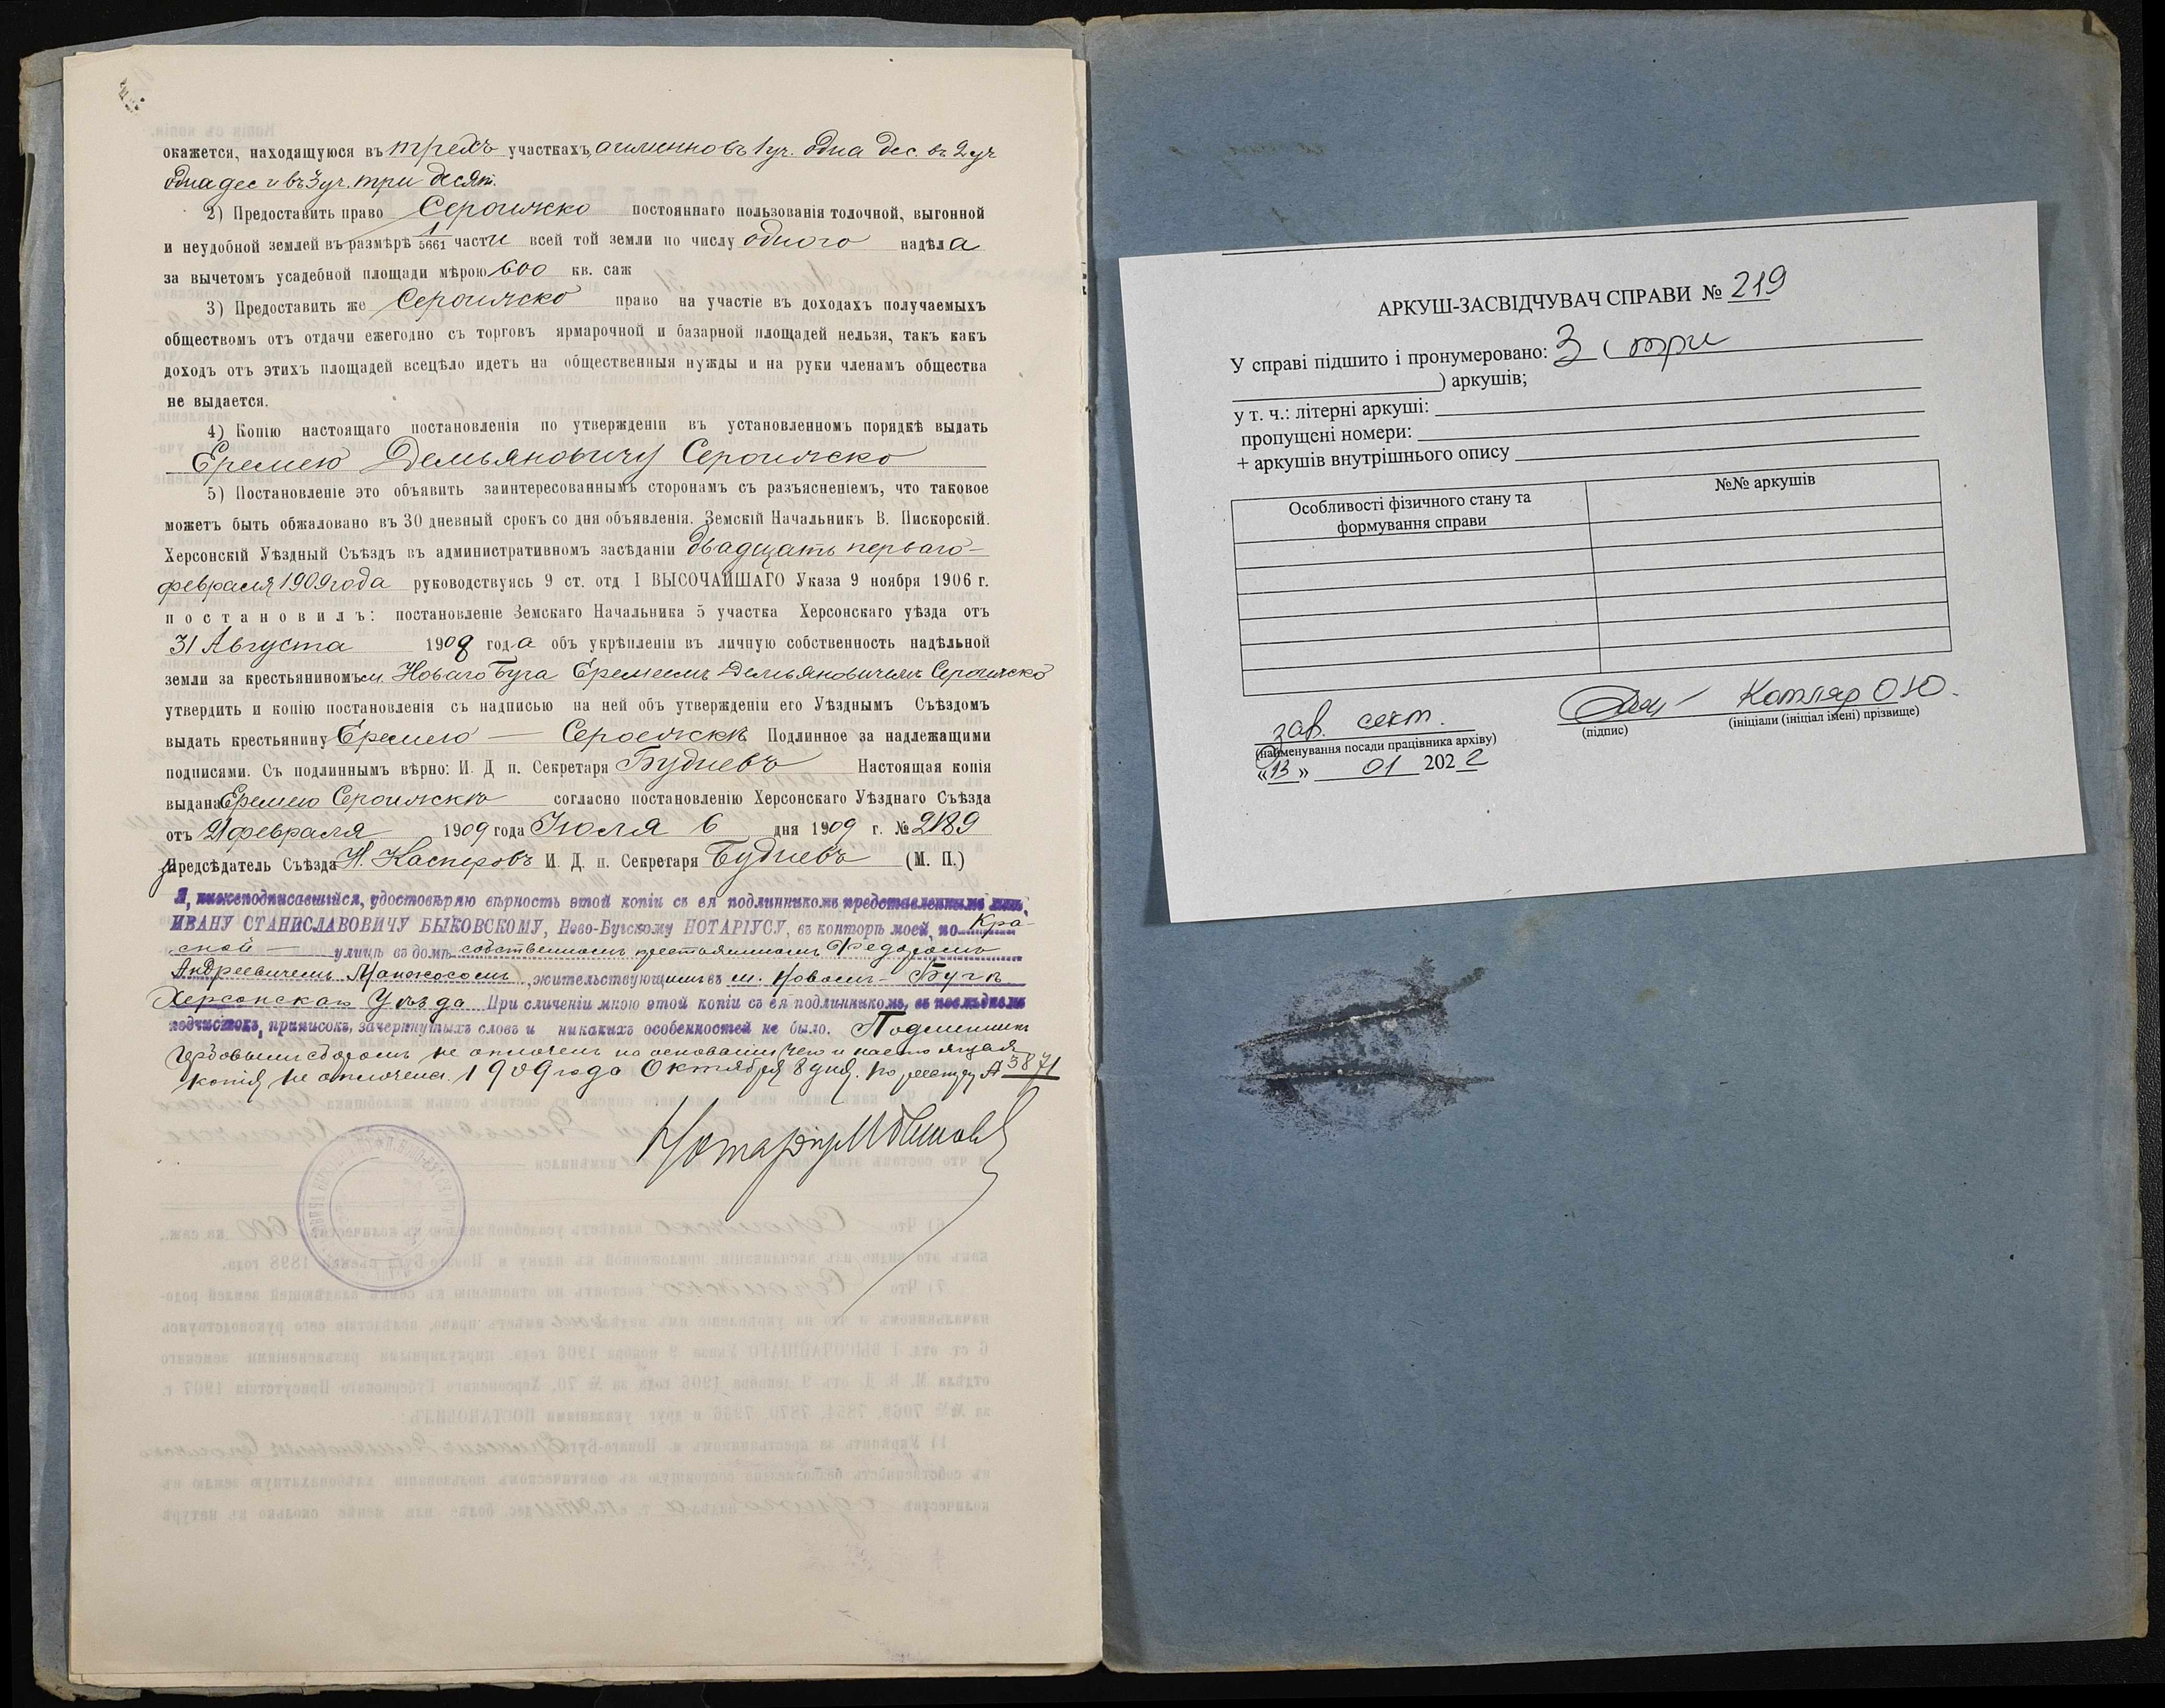 окажется, находящуюся въ трехъ участкахъ, а именно въ 1 уч. одна дес. въ 2 уч
одна дес и въ 3 уч. три десят.
2) Предоставить право Серошжко постояннаго пользованія толочной, выгонной
и неудобной землей въ размѣрѣ 1/5661 части всей той земли по числу одного надѣла
за вычетомъ усадебной площади мѣрою 600 кв. саж
3) Предоставить же право на участіе въ доходахъ получаемыхъ
обществомъ отъ отдачи ежегодно съ торговъ ярмарочной и базарной площадей нельзя, такъ какъ
доходъ отъ этихъ площадей всецѣло идетъ на общественныя нужды и на руки членамъ общества
не выдается.
4) Копію настоящаго постановленія по утвержденіи въ установленномъ порядкѣ выдать
Еремею Демьяновичу
5) Постановленіе это объявить заинтересованнымъ сторонамъ съ разъясненіемъ, что таковое
можетъ быть обжаловано въ 30 дневный срокъ со дня объявленія. Земскій Начальникъ В. Пискорскій.
Херсонскій Уѣздный Съѣздъ въ административномъ засѣданіи двадцать перваго
февраля 1909 года руководствуясь 9 ст. отд. I ВЫСОЧАЙШАГО Указа 9 ноября 1906 г.
постановилъ: постановленіе Земскаго Начальника 5 участка Херсонскаго уѣзда отъ
31 Августа 1908 года объ укрѣпленіи въ личную собственность надѣльной
земли за крестьяниномъ м. Новаго Буга Еремеемъ Демьяновичемъ
утвердить и копію постановленія съ надписью на ней объ утвержденіи его Уѣзднымъ Съѣздомъ
выдать крестьянину Еремею Подлинное за надлежащими
подписями. Съ подлиннымъ вѣрно: И. Д п. Секретаря Будневъ Настоящая копія
выдана Еремею согласно постановленію Херсонскаго Уѣзднаго Съѣзда
отъ 21 февраля 1909 года Іюля 6 дня 1909 г. № 2189
Предсѣдатель Съѣзда Н. Касперовъ И. Д. п. Секретаря Будневъ (М. П.)
Я, нижеподписавшійся, удостовѣряю вѣрность этой копіи съ ея подлинникомъ представленнымъ мнѣ,
ИВАНУ СТАНИСЛАВОВИЧУ БЫКОВСКОМУ, Ново-Бугскому НОТАРІУСУ, въ конторѣ моей, по Кра-
сной улицѣ въ домѣ собственномъ крестьяниномъ Федоромъ
Андреевичемъ Манжосомъ, жительствующимъ въ м. Новомъ-Бугѣ
Херсонскаго Уѣзда При сличеніи мною этой копіи съ ея подлинникомъ, въ послѣднемъ
подчистокъ, приписокъ, зачеркнутыхъ словъ и никакихъ особенностей не было. Подлинникъ
гербовымъ сборомъ не оплоченъ на основаніи чего и настоящая
копія не оплочена. 1909 года Октября 8 дня. По реестру № 3871
Нотаріусъ
АРКУШ-ЗАСВІДЧУВАЧ СПРАВИ № 219
У справі підшито і пронумеровано: 3 ( три
) аркушів;
у т. ч.: літерні аркуші:
пропущені номери:
+ аркушів внутрішнього опису
Особливості фізичного стану та формування справи
№№ аркушів
зав. сект. Котляр О.Ю.
(найменування посади працівника архіву) (підпис) (ініціали (ініціал імені) прізвище)
«13» 01 2022